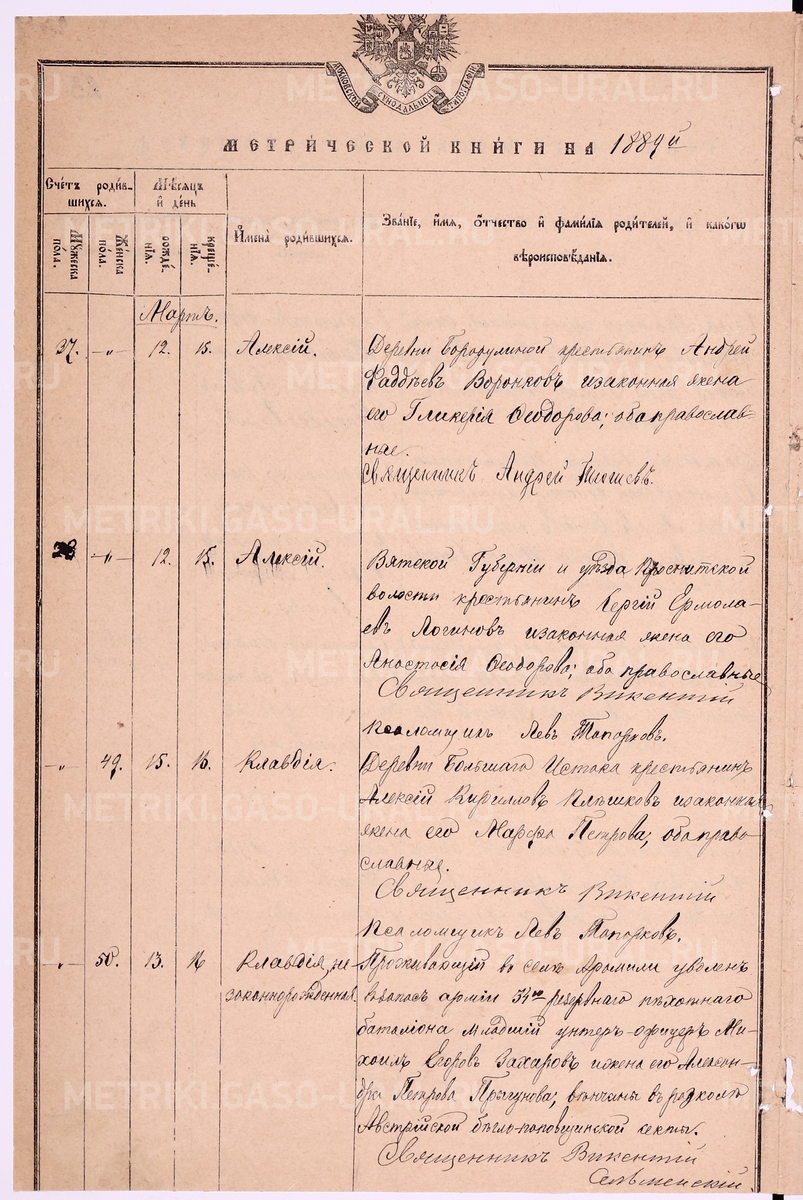 МОСКОВСКОЙ СѴНОДАЛЬНОЙ ТИПОГРАФІИ
МЕТРИ́ЧЕСКОЙ КНИ́ГИ НА 1889й
Сче́тъ роди́в-
шихся.
Мѣ́сяцъ
и҆ де́нь
И҆мена̀ роди́вшихся.
Зва́нїе, и҆́мя, ѻ҆́тчество и҆ фами́лїя роди́телей, и҆ како́гѡ
вѣроисповѣ́данїя.
Мꙋ́жеска по́ла.
Же́нска по́ла.
рожде́нїѧ.
креще́нїѧ.
Мартъ.
37. -"- 12. 15. Алексій.
Деревни Бородулиной крестьянинъ Андрей
Фаддѣевъ Воронковъ изаконная жена
его Гликерія Ѳеодорова; оба православ-
ные.
Священникъ Андрей
38 -"- 12. 15. Алексій.
Вятской Губерніи и уѣзда
волости крестьянинъ Сергій Ермола-
евъ Логиновъ изаконная жена его
Анастасія Ѳеодорова; оба православные
Священникъ Викентій
Псаломщикъ Левъ Топорковъ.
-"- 49. 15. 16. Клавдія.
Деревни Большаго Истока крестьянинъ
Алексій Кирилловъ Плѣшковъ изаконная
жена его Марфа Петрова; оба право-
славные.
Священникъ Викентій
Псаломщикъ Левъ Топорковъ.
-"- 50. 13. 16 Клавдія, не-
законнорожденная.
Проживающій въ селѣ Арамили уволен.
взапасъ арміи 54го резервнаго пѣхотнаго
баталіона младшій унтеръ-офицеръ Ми-
хаилъ Егоровъ Захаровъ ижена его Алексан-
дра Петрова вѣнчаны въ расколѣ
Австрійской бѣгло-поповщинской секты.
Священникъ Викентій